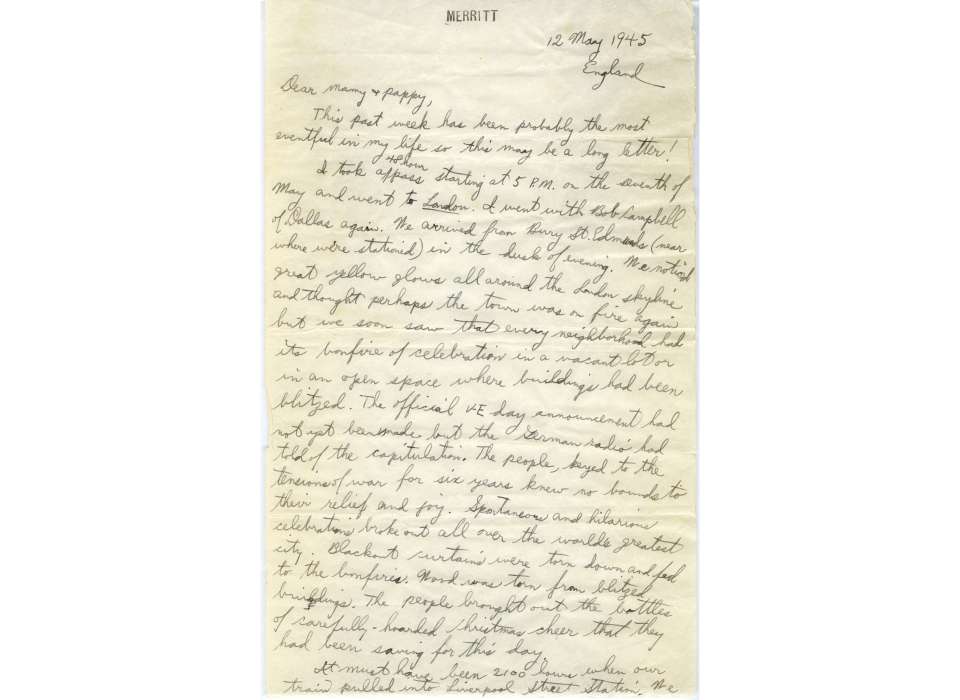 MERRITT
12 May 1945
England
Dear Mamy & Pappy,
This past week has been probably the most
eventful in my life so this may be a long letter!
48 hour
I took a pass starting at 5 P.M. on the seventh of
May and went to London. I went with Bob Campbell
of Dallas again. We arrived from Bury St. Edmunds (near
where we're stationed) in the dusk of evening. We noticed
great yellow glows all around the London skyline
and thought perhaps the town was on fire again
but we soon saw that every neighborhood had
its bonfire of celebration in a vacant lot or
in an open space where buildings had been
blitzed. The official V-E day announcement had
not yet been made but the German radio had
told of the capitulation. The people, keyed to the
tensions of war for six years knew no bounds to
their relief and joy. Spontaneous and hilarious
celebrations broke out all over the world's greatest
city. Blackout curtains were torn down and fed
to the bonfires. Wood was torn from blitzed
buildings. The people brought out the bottles
of carefully-hoarded Christmas cheer that they
had been saving for this day.
It must have been 2100 hours when our
train pulled into Liverpool Street Station. We